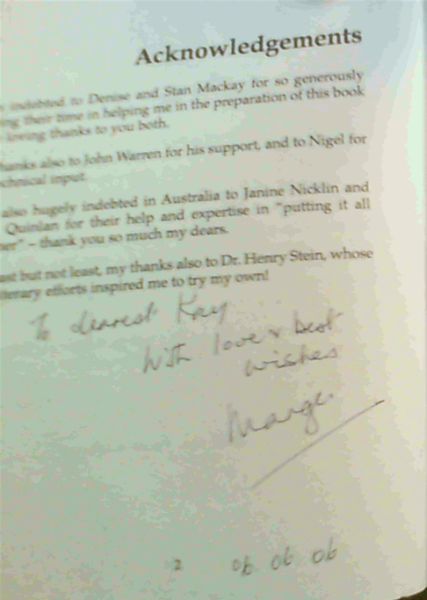 Acknowledgements
indebted to Denise and Stan Mackay for so generously
ing their time in helping me in the preparation of this book
loving thanks to you both.
hanks also to John Warren for his support, and to Nigel for
chnical input.
also hugely indebted in Australia to Janine Nicklin and
Quinlan for their help and expertise in "putting it all
her" – thank you so much my dears.
ast but not least, my thanks also to Dr. Henry Stein, whose
iterary efforts inspired me to try my own!
To dearest Kay
With love & best
wishes
Marge.
2
06 06 06